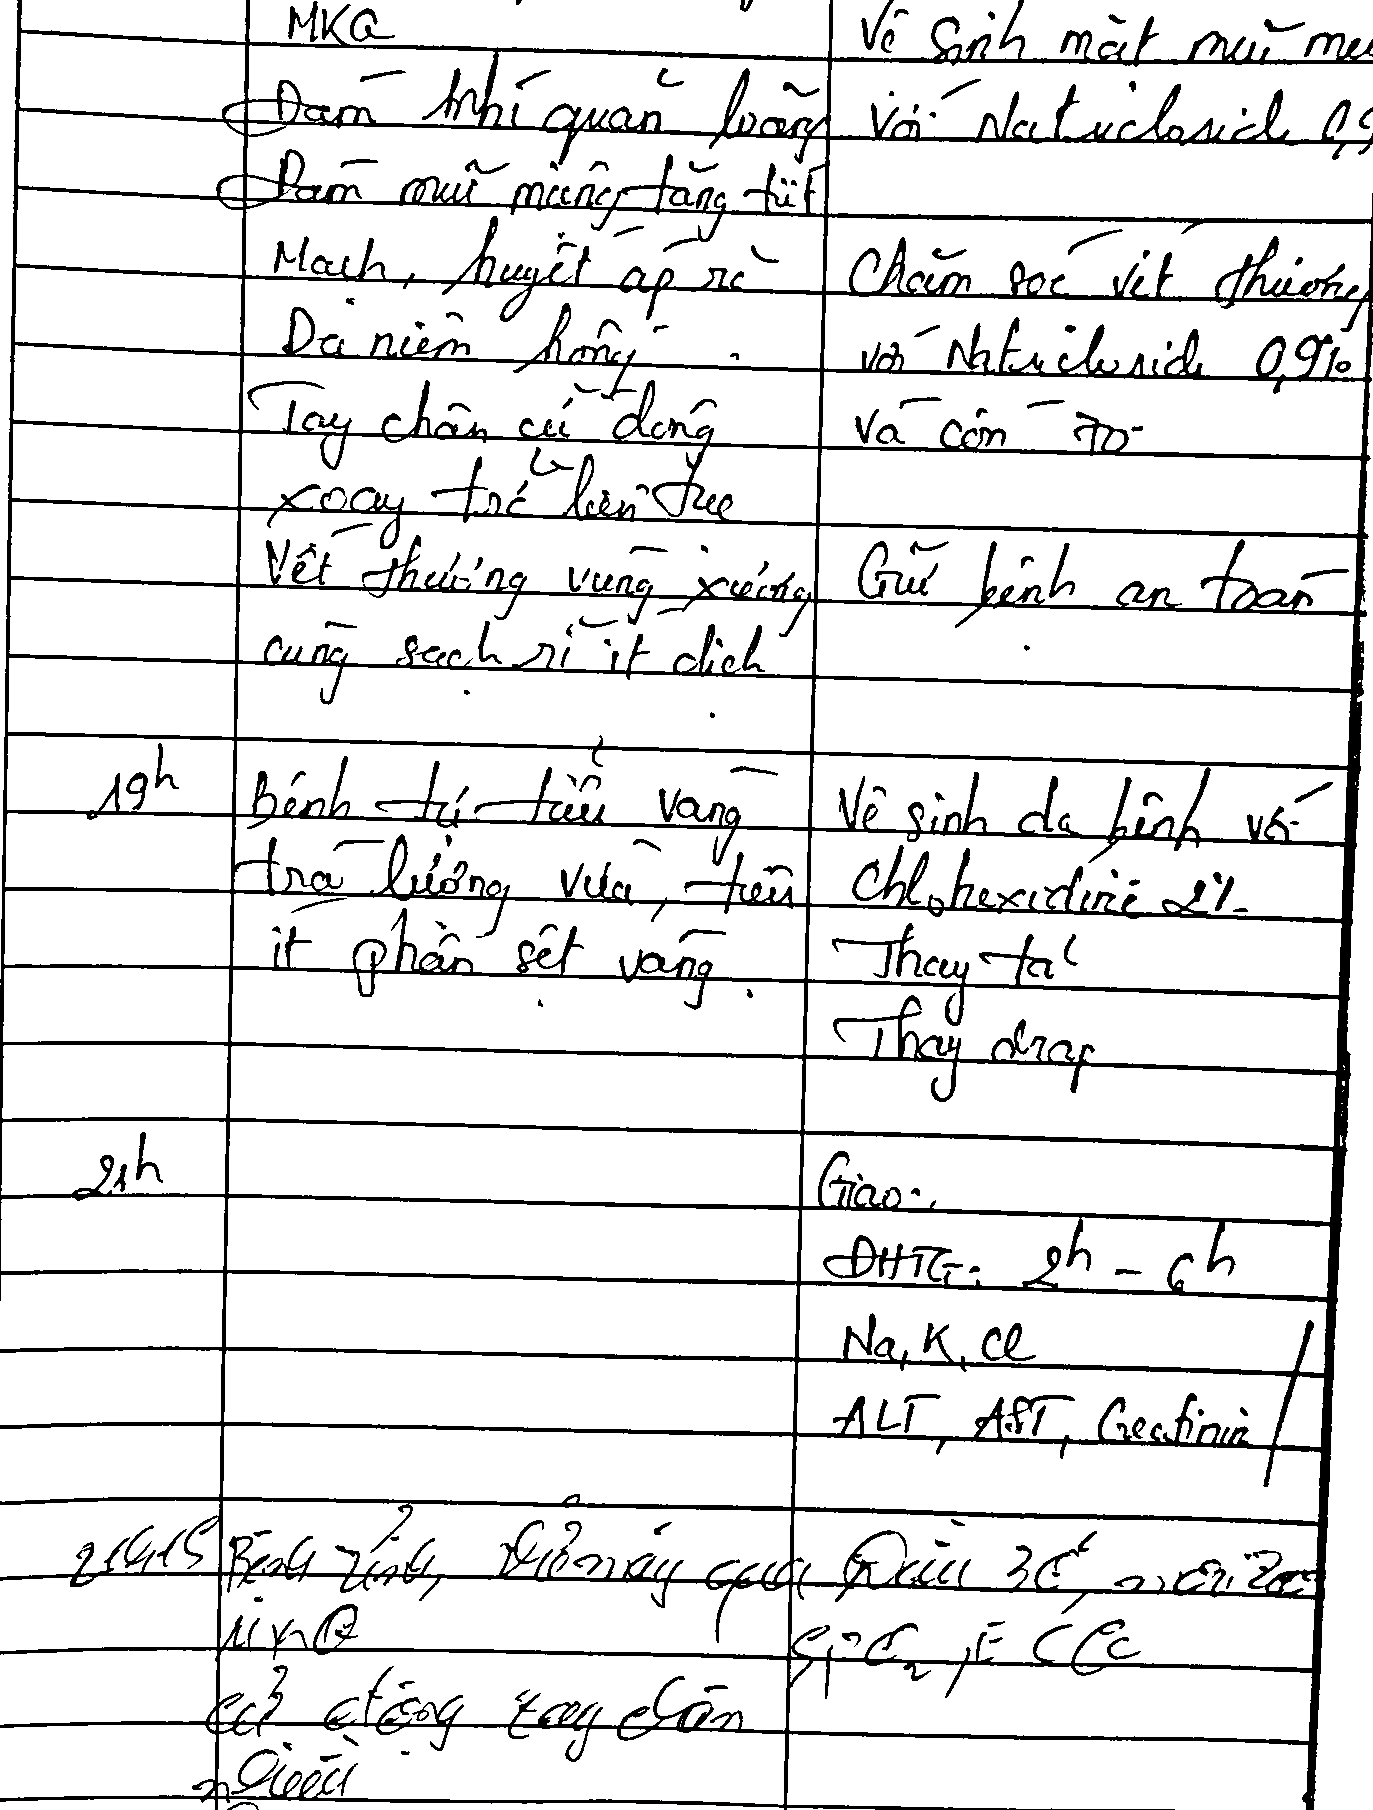 MKQ
Vệ sinh mắt mũi
Đàm khí quản loãng
với Natriclorid 0,9
Đàm mũi miệng tăng tiết
Mạch, huyết áp rõ
Chăm sóc vết thương
Da niêm hồng
với Natriclorid 0,9%
Tay chân cử động
và cồn 70
xoay trở liên tục
Vết thương vùng xương
Giữ bệnh an toàn
cùng sạch rỉ ít dịch
19h
Bệnh tự tiểu vàng
Vệ sinh da bệnh với
trà lượng vừa, tiêu
Chlohexidine 2%
ít phân sệt vàng
Thay tã
Thay drap
21h
Giao:
DHST: 2h - 6h
Na, K, Cl
ALT, AST, Creatinin
21h15
Bệnh tỉnh, thở máy qua
Đầu 30°,
MKQ
SpO2, ECG
cử động tay chân
nhiều